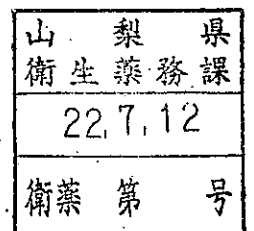 山梨県
衛生薬務課
22.7.12
衛薬第　号